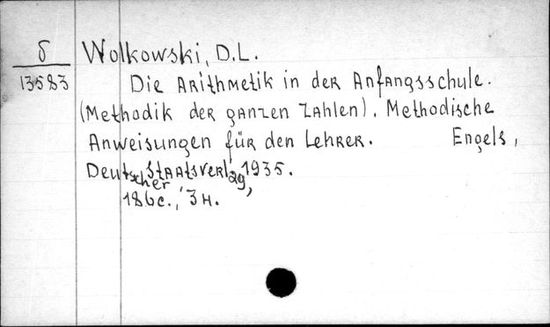 б
13583
Wolkowski, D.L.
Die Arithmetik in der Anfangsschule.
(Methodik der ganzen Zahlen). Methodische
Anweisungen für den Lehrer. Engels,
Deutscher Staatsverlag, 1935.
186c., 3н.